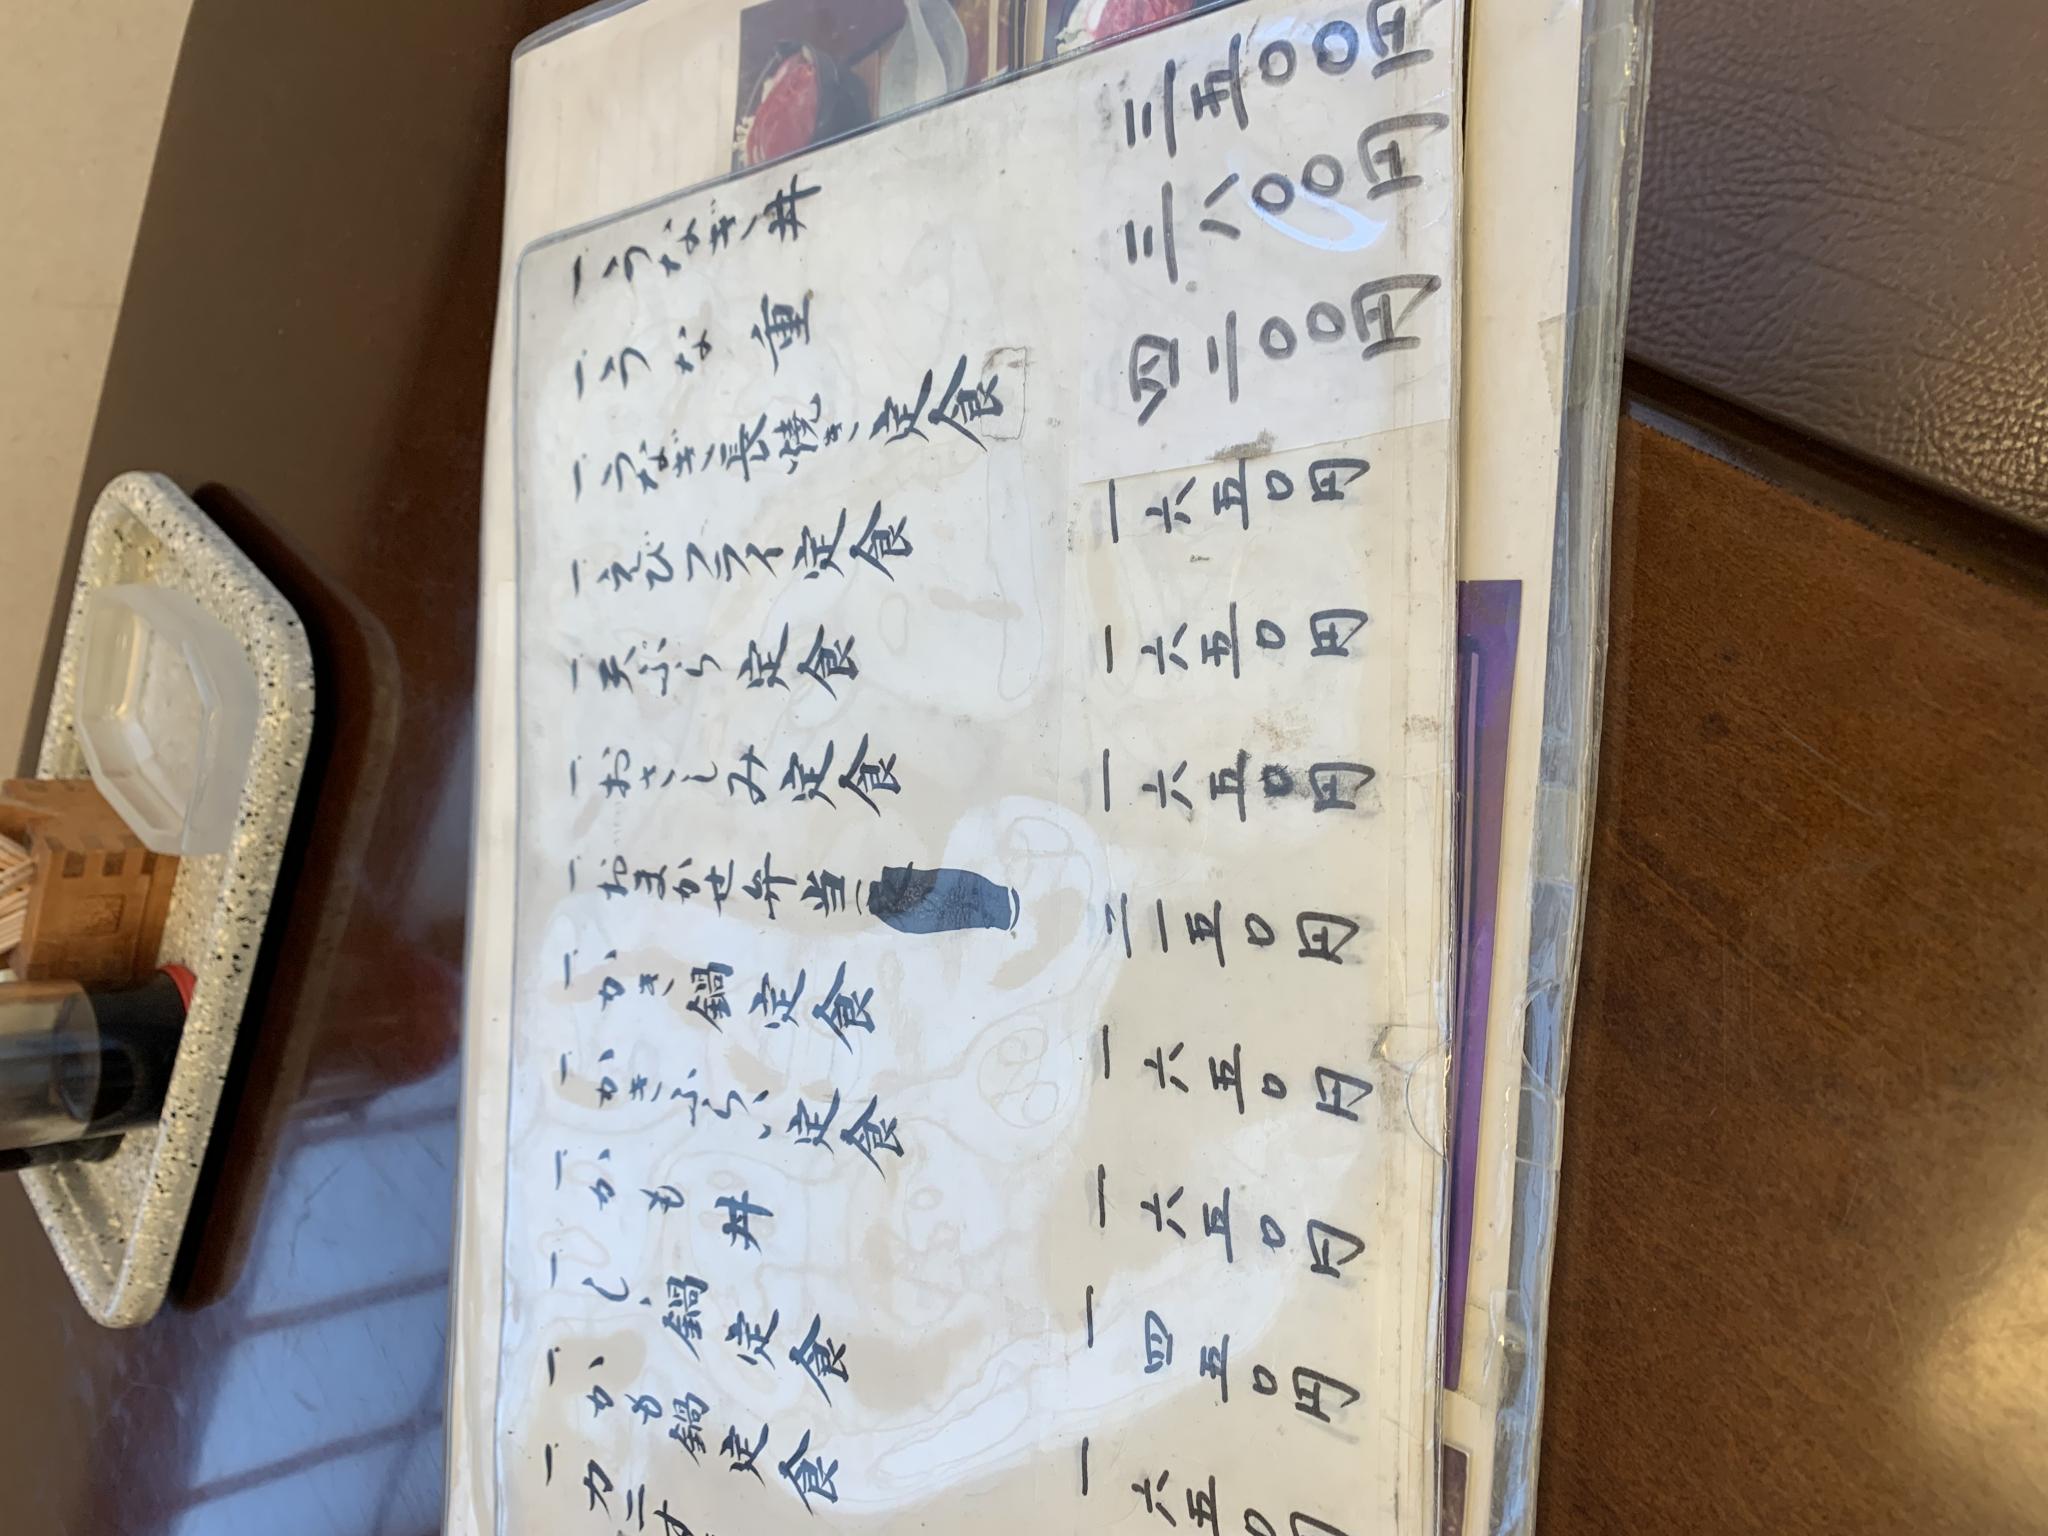 一、うなぎ丼 三五〇〇円
一、うな重 三八〇〇円
一、うなぎ長焼き定食 四二〇〇円
一、えびフライ定食 一六五〇円
一、天ぷら定食 一六五〇円
一、おさしみ定食 一六五〇円
一、おまかせ弁当 二一五〇円
一、かき鍋定食 一六五〇円
一、かきふらい定食 一六五〇円
一、かも丼 一四五〇円
一、しゝ鍋定食 一六五〇円
一、かも鍋定食
一、カニ